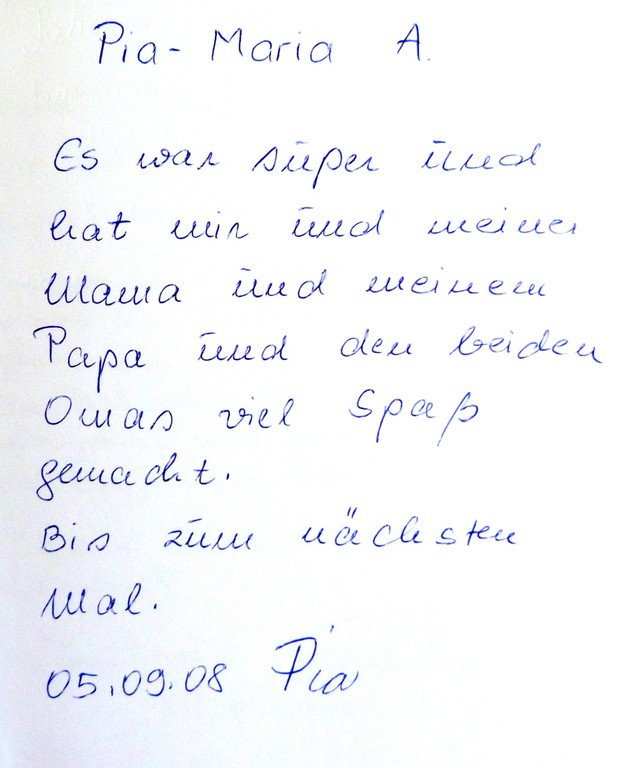 Pia-Maria A.
Es war super und
hat mir und meiner
Mama und meinem
Papa und den beiden
Omas viel Spaß
gemacht.
Bis zum nächsten
Mal.
05.09.08 Pia